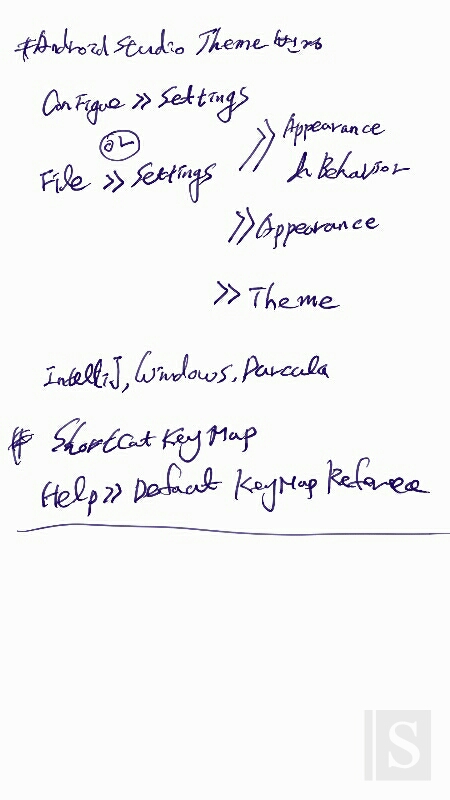 #Android Studio Theme 변경
Configue >> Settings
or
File >> Settings
>> Appearance
& Behavior
>> Appearance
>> Theme
IntelliJ, Windows, Darcula
# Shortcut Key Map
Help >> Default KeyMap Reference
S